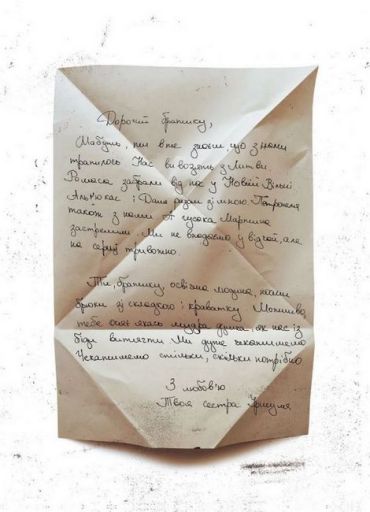 Дорогий братику,
Мабуть, ти вже знаєш, що з нами
трапилось. Нас вивозять з Литви.
Ромаса забрали від нас у Новій Вільні
Альгюкас і Дана разом зі мною. Петронеля
також з нами. От гусока Марціна
застрелили. Ми не впадаємо у відчай, але
на серці тривожно.
Ти, братику, освічена людина, носиш
брюки зі складкою і краватку. Можливо,
тебе осяє якась мудра думка, як нас із
біди витягти. Ми дуже чекатимемо.
Чекатимемо стільки, скільки потрібно
З любов'ю
Твоя сестра